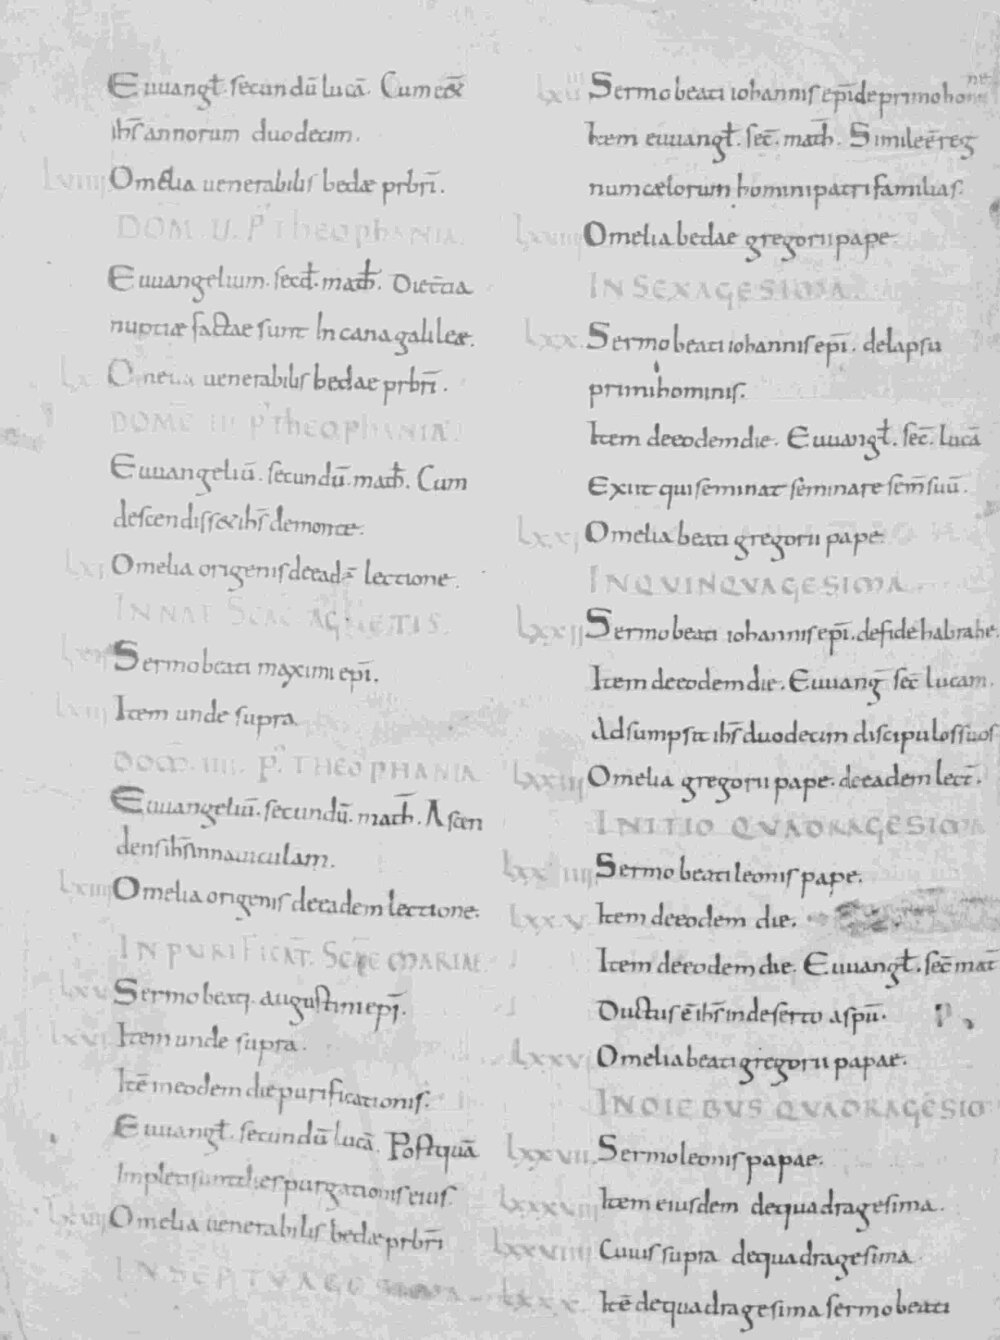 Euuangł. secundū lucā. Cum eēt
ihs̄ annorum duodecim.
Lviiii Omelia uenerabilis bedæ prbrī.
DOM. II. P' TheOPhANIA.
Euuangelium. secd̄. math̄. Die t̄cia
nuptiæ factae sunt In cana galileæ.
Lx Omelia uenerabilis bedae prbrī.
DOMC III P' TheOPhANIA.
Euuangeliū. secundū. math̄. Cum
descendisset ihs̄ de monte.
Lxi Omelia origenis de eadē lectione.
IN NAT SCAE AGNETIS.
Sermo beati maximi epī.
Lxiii Item unde supra
DOM. IIII. P. THEOPHANIA
Euuangeliū. secundū. math̄. Ascen
dens ihs̄ In nauiculam.
Lxiiii Omelia origenis de eadem lectione.
IN PURIFICAT. SCAE MARIAE
Lxv Sermo beati augustini epī.
Lxvi Item unde supra.
Itē in eodem die purificationis.
Euuangł. secundū lucā. Postquā
Impleti sunt dies purgationis eius.
Lxvii Omelia uenerabilis bedæ prbrī
IN SEPTVAGESIMA
Sermo beati iohannis epī de primo hone
Item euuangł. sec̄. math̄. Simile ē reg
num cælorum homini patri familias.
Omelia bedae gregorii pape.
IN SEXAGESIMA.
Lxx. Sermo beati iohannis epī. de lapsu
primi hominis.
Item de eodem die. Euuangł. sec̄. lucā
Exiit qui seminat seminare sem̄ suū.
Lxxi Omelia beati gregorii pape.
IN QVINQVAGESIMA.
Lxxii Sermo beati iohannis epī. de fide habrahe.
Item de eodem die. Euuanḡ sec̄ lucam.
Adsumpsit ihs̄ duodecim discipulos suos
Lxxiii Omelia gregorii pape. de eadem lect̄.
INITIO QVADRAGESIM
Lxxiiii Sermo beati leonis pape.
Lxxv Item de eodem die.
Item de eodem die. Euuangł. sec̄ mat̄
Ductus ē ihs̄ in deserto a spū.
Lxxvi Omelia beati gregorii papae.
IN DIEBVS QVADRAGESIO
Lxxvii. Sermo leonis papae.
Lxxxviii Item eiusdem de quadragesima.
Lxxviiii Cuius supra de quadragesima.
Lxxx Itē de quadragesima sermo beati